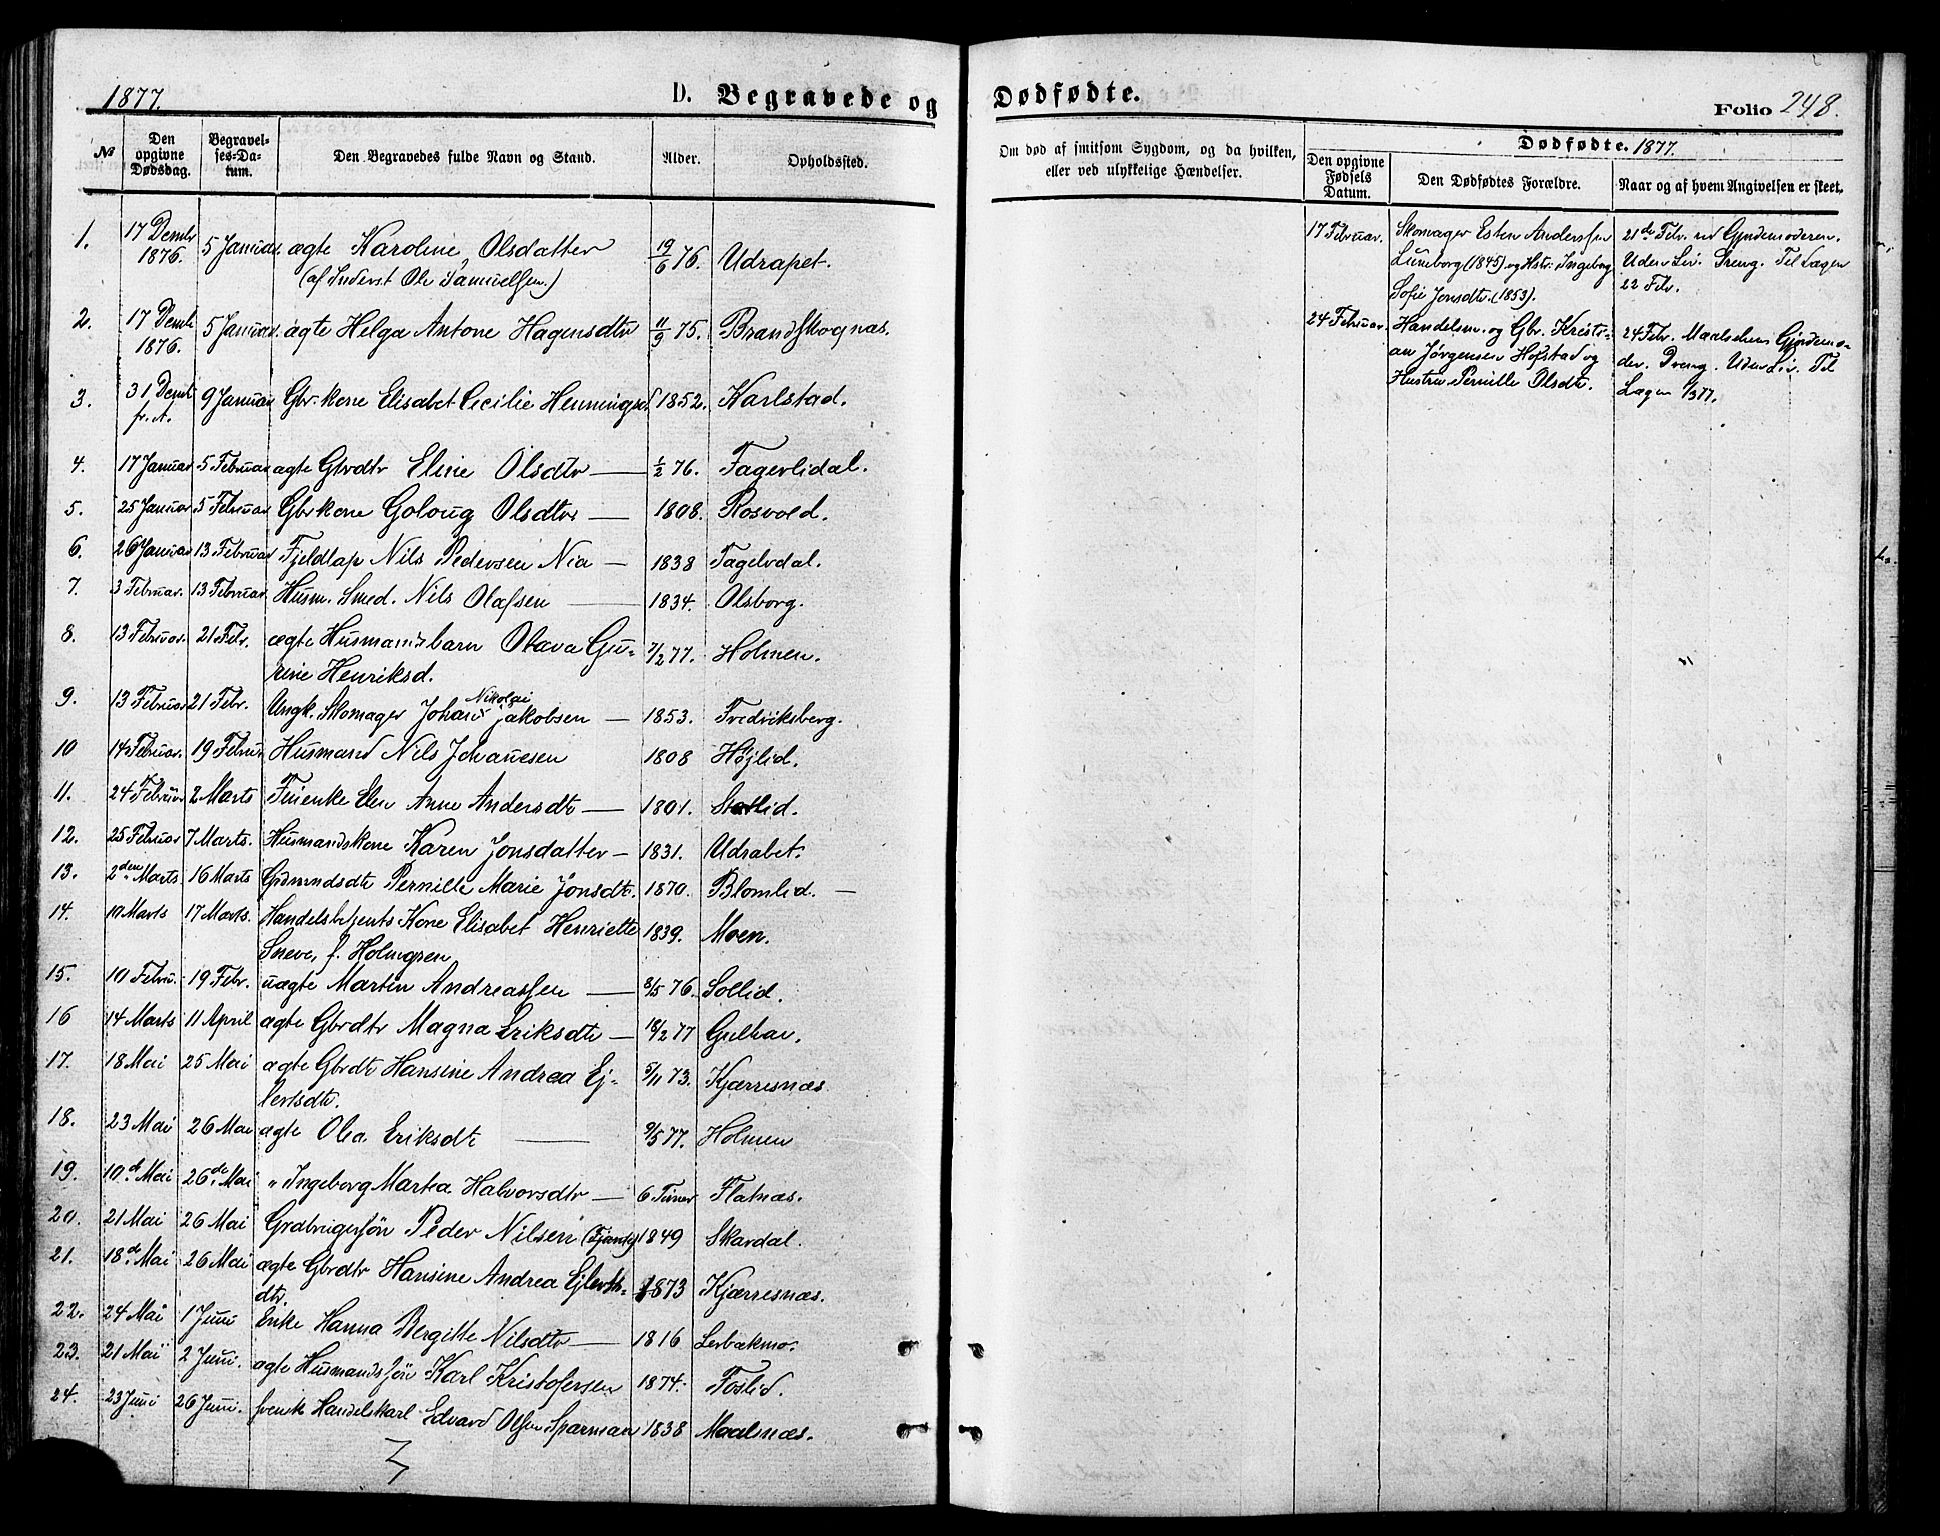 1877.
D. Begravede og
№
Den opgivne Dødsdag.
Begravelses-Datum.
Den Begravedes fulde Navn og Stand.
Alder.
Opholdssted.
1. 17 Dembr 1876. 5 Januar. ægte Karoline Olsdatter 19/6 76. Udrapet.
(af Inderst Ole Samuelsen.)
2. 17 Demb 1876. 5 Januar. ægte Helga Antone Hagensdtr 11/9 75. Brandskognæs.
3. 31 Demb f. A. 9 Januar Gbr.kone Elisabet Cecilie Hennings 1852. Karlstad.
4. 17 Januar 5 Februar ægte Gbrdtr Eline Olsdtr — 1/2 76. Fagerlidal.
5. 25 Januar 5 Februar Gbrkone Goloug Olsdtr — 1808. Rosvold.
6. 26 Januar 13 Februar Fjeldlap Nils Pedersen Nia — 1838 Tagelvdal.
7. 3 Februar. 13 Februar. Husm. Smed. Nils Olafsen — 1834. Olsborg.
8. 13 Februar. 21 Febr. ægte Husmandsbarn Olava Gu-
rine Henriksd. 7/2 77. Holmen.
9. 13 Februar 21 Febr. Ungk. Skomager Johan Nikolai Jakobsen — 1853. Fredriksberg.
10 14 Februar. 19 Februar Husmand Nils Johannesen 1808 Højlid.
11. 24 Februar 2 Marts Enke Elen Anne Andersdt — 1801.
12. 25 Februar 7 Marts. Husmandskone Karen Jonsdatter — 1831. Udrabet.
13. 2den Marts 16 Marts Pernille Marie Jonsdt. 1870. Blomlid. —
14. 10 Marts 17 Marts. Handelsbetjents Kone Elisabet Henriette
Sneve, f. Holmgren 1839. Moen.
15. 10 Febru. 19 Febr. uægte Martin Andreassen — 8/5 76. Sollid.
16 14 Marts 11 April ægte Gbrdtr Magna Eriksdt — 18/2 77 Gulhav.
17. 18 Mai 25 Mai ægte Gbrdt Hansine Andrea Ej-
lertsdt. 5/11 73. Kjærresnæs
18. 23 Mai 26 Mai ægte Olea Eriksdt — 9/5 77. Holmen
19. 10de Mai 26de Mai " Ingeborg Martea Halvorsdtr — 6 Timer Flatnæs.
20. 21 Mai 26 Mai Grdbrugersøn Peder Nilsen 1849 Skardal.
21. 18de Mai 26 Mai ægte Gbrdtr Hansine Andrea Ejlerts-
dtr. 1873 Kjærresnæs.
22. 24 Mai 1 Juni Enke Hanna Bergitte Nilsdtr — 1816 Lerbækmo.
23. 21 Mai 2 Juni. ægte Husmandssøn Karl Kristofersen 1874. Foslid.
24. 23 Juni 26 Juni. svensk Handelskarl Edvard Olsen Sparman 1838 Maalsnæs.
Dødfødte.
Folio 248.
Om død af smitsom Sygdom, og da hvilken,
eller ved ulykkelige Hændelser.
Dødfødte. 1877.
Den opgivne Fødsels Datum.
Den Dødfødtes Forældre.
Naar og af hvem Angivelsen er skeet.
17 Februar. Skomager Esten Anderssen
Luneborg (1845) og Hstr. Ingeborg
Sofie Jonsdt. (1853).
21de Febr. ved Gjordemoderen.
Uden Liv. Dreng. Til Lægen
22 Febr.
24 Februar. Handelsm. og Gbr. Kristi-
an Jørgensen Hofstad og
Hustru Pernille Olsdt.
24 Febr. Maalselvens Gjordemo-
der. Dreng. Uden Liv. Til
Lægen 1/3 77.